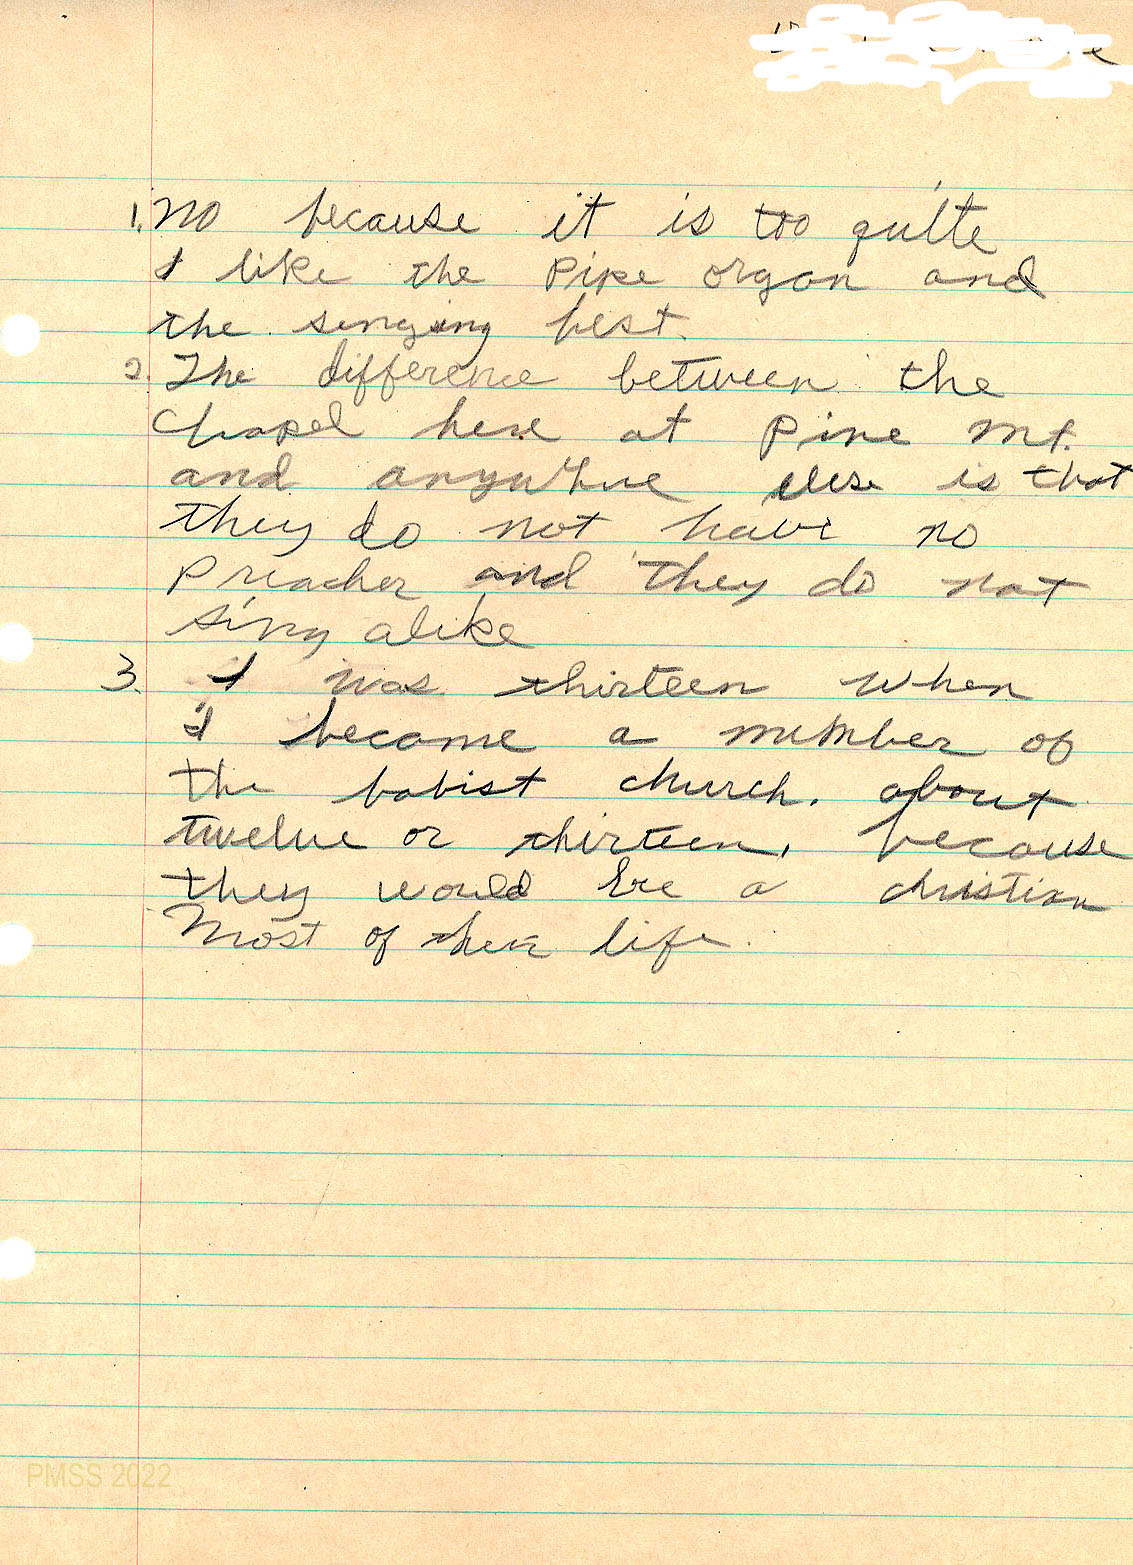 1. No because it is too quitte
I like the Pipe organ and
the singing best.
2. The difference between the
Chapel here at Pine Mt.
and anywhre else is that
they do not have no
Preacher and they do not
sing alike
3. I was thirteen when
I become a member of
the babist church. about
twelve or thirteen, because
they would be a christian
Most of their life.
PMSS 2022